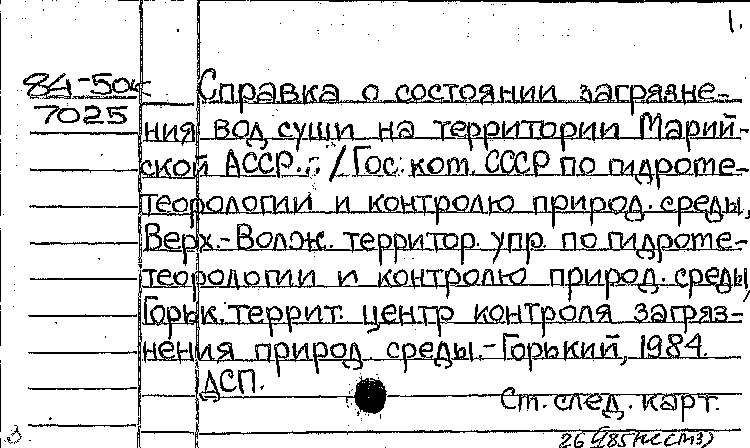 1.
84-50к
7025
Справка о состоянии загрязне-
ния вод суши на территории Марий-
ской АССР... / Гос. ком. СССР по гидроме-
теорологии и контролю природ. среды,
Верх.-Волж. территор. упр. по гидроме-
теорологии и контролю природ. среды,
Горьк. террит. центр контроля загряз-
нения природ. среды.-Горький, 1984.
ДСП.
Ст. след. карт.
3